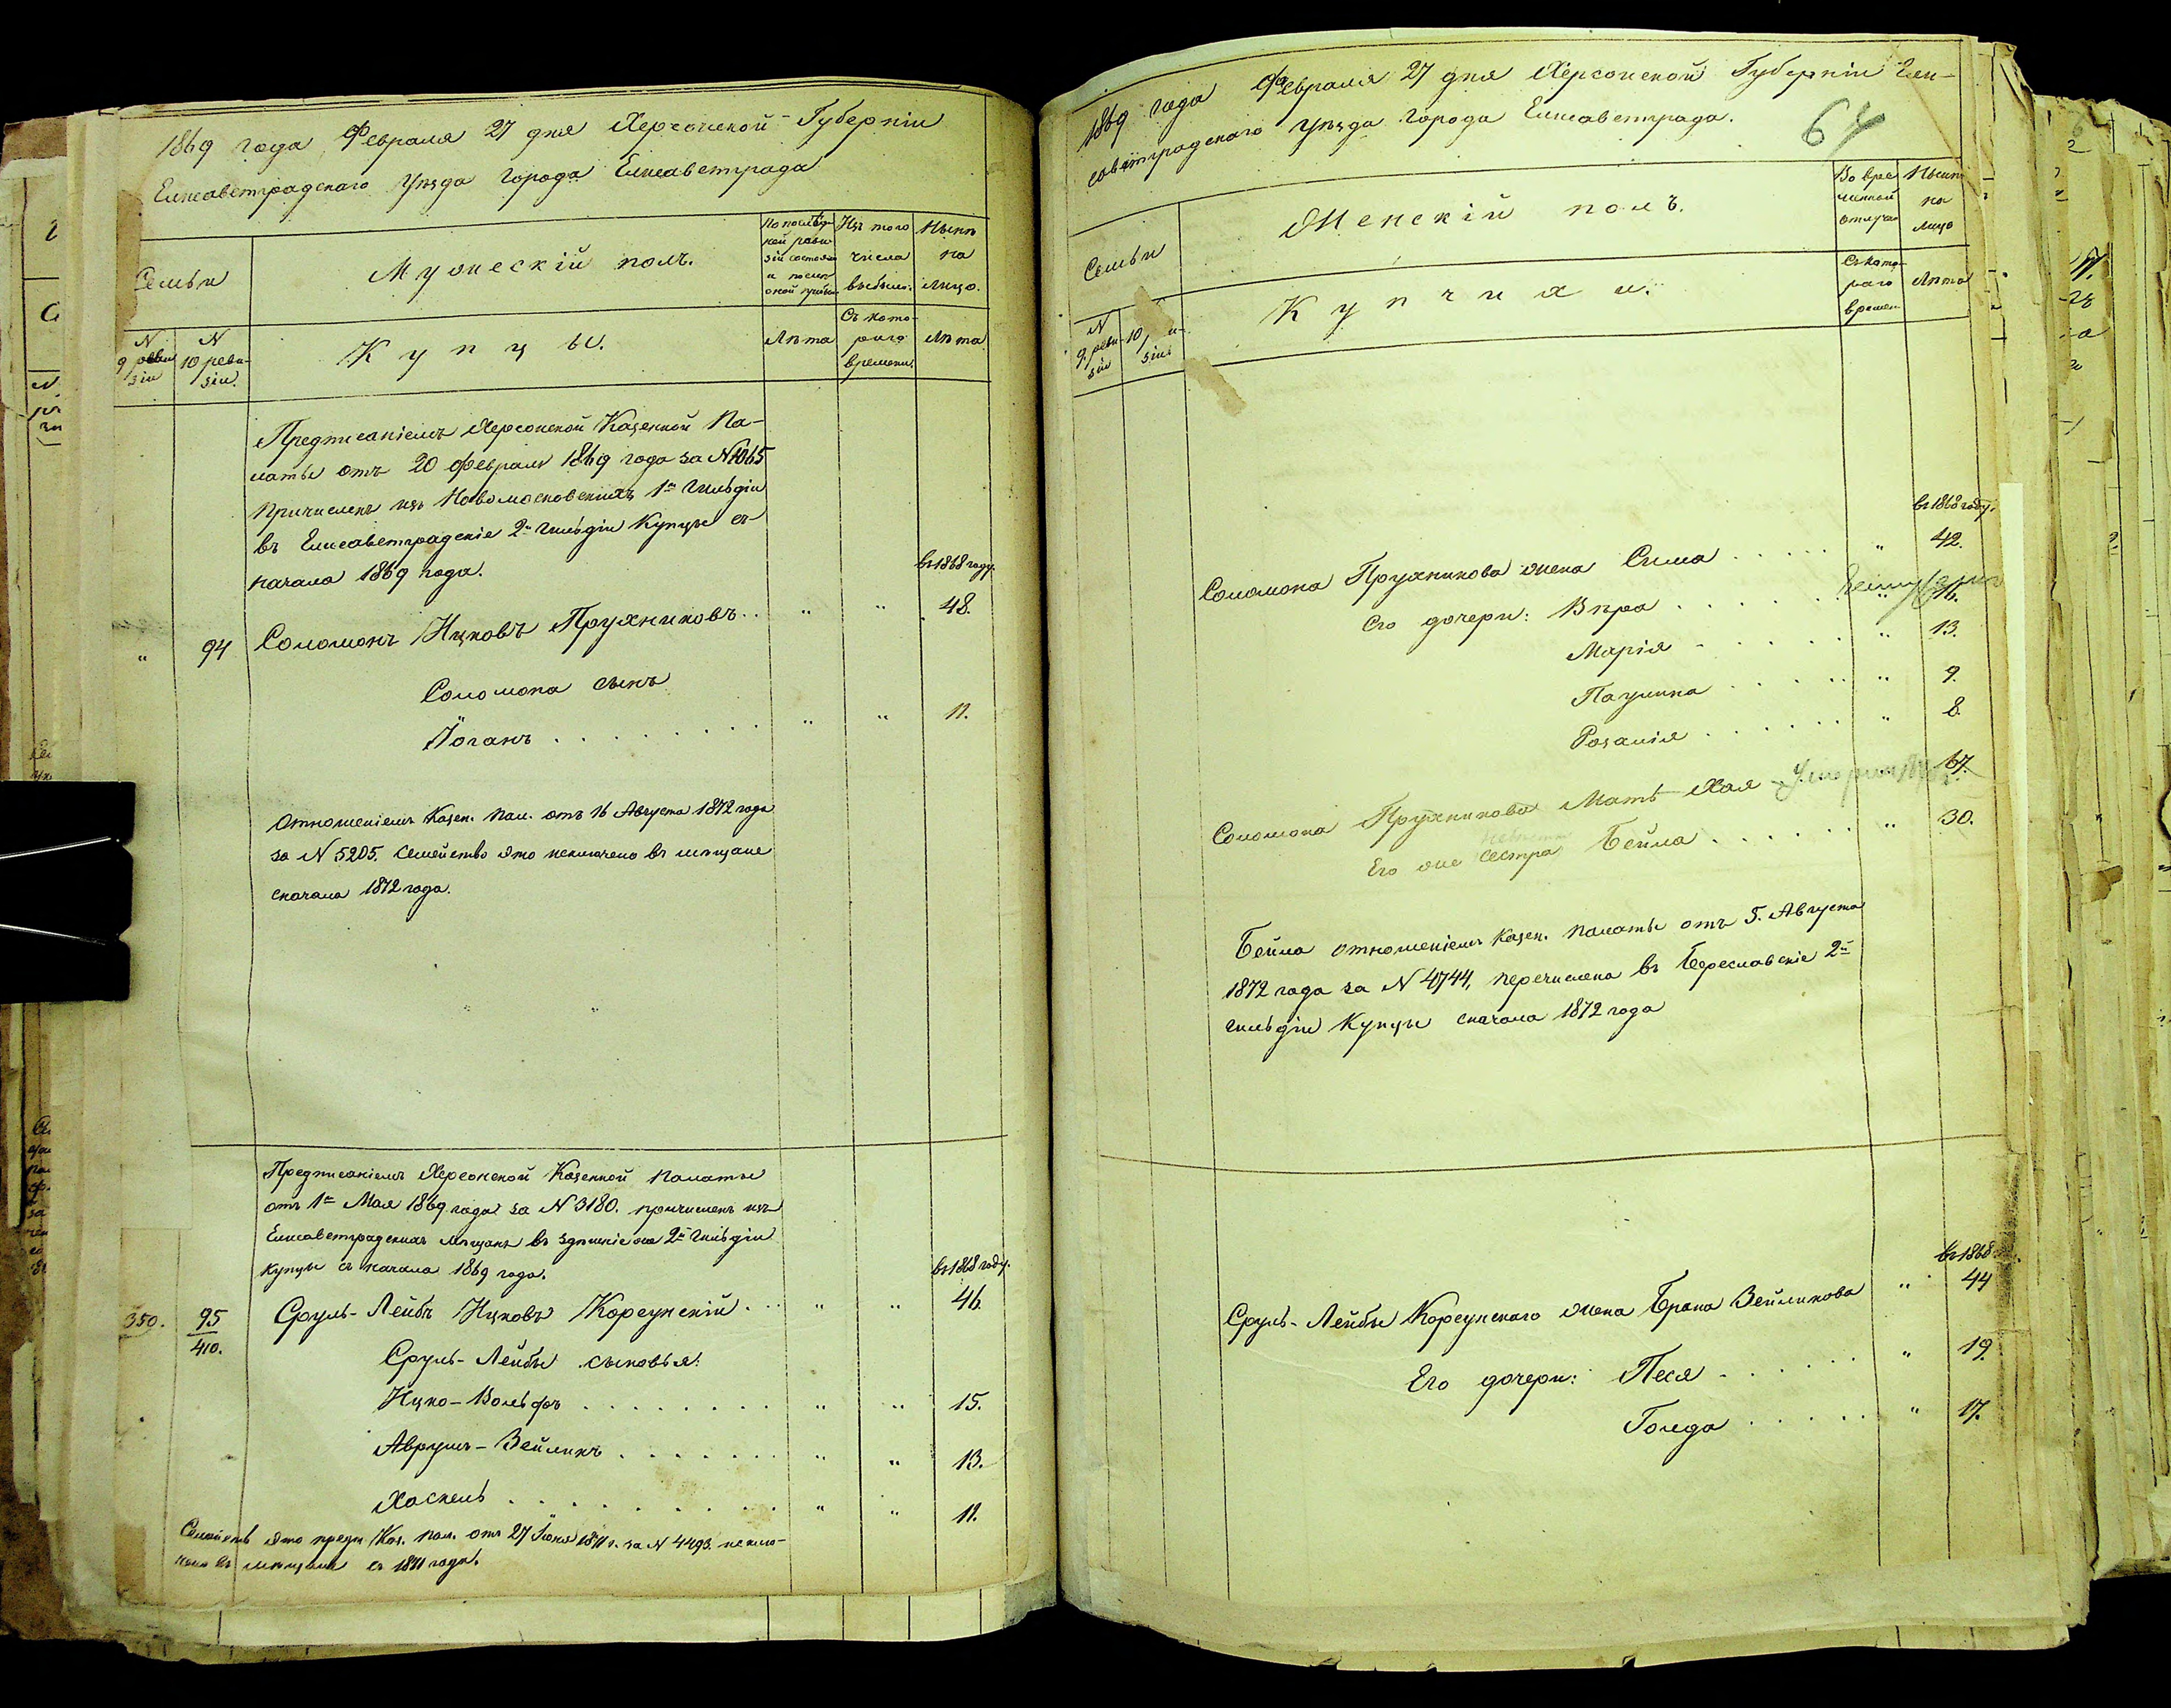 1869 года Февраля 27 дня Херсонской Губерніи
Елисаветградскаго Уѣзда города Елисаветграда
Семьи
Мужескій полъ.
По послѣд-
ней реви-
зіи состояло
и послѣ
оной прибыло
Изъ того
числа
выбыло.
Нынѣ
на
лицо.
N
9 реви
зіи
N
10 реви-
зіи.
Купцы.
Лѣта
Съ кото-
раго
времени.
Лѣта
Предписаніемъ Херсонской Казенной Па-
латы отъ 20 Февраля 1869 года за N 1065
причисленъ изъ Новомосковскихъ 1й гильдіи
въ Елисаветградскіе 2й гильдіи Купцы съ
начала 1869 года.
въ 1868 году.
" 94 Соломонъ Ицковъ Пружниковъ . . " " 48.
Соломона сынъ
Іоганъ . . . . . . . . " " 11.
Отношеніемъ Казен. Пал. отъ 16 Августа 1872 года
за N 5205. Семейство это исключено въ мѣщане
сначала 1872 года.
Предписаніемъ Херсонской Казенной Палаты
отъ 1го Мая 1869 года за N 3180. причисленъ изъ
Елисаветградскихъ мѣщанъ въ здѣшніе 2й гильдіи
купцы съ начала 1869 года.
въ 1868 году.
350. 95
410.
Сруль-Лейбъ Ицковъ Корсунскій . . " " 46.
Сруль-Лейбы сыновья:
Ицко-Вольфъ . . . . . . . . " " 15.
Аврумъ-Зейликъ . . . . . . . " " 13.
Хаскель . . . . . . . . . . " " 11.
Семейств это предп. Каз. Пал. отъ 27 Іюня 1871 г. за N 4493. исклю-
чено въ мѣщане съ 1871 года.
1869 года Февраля 27 дня Херсонской Губерніи Ели-
саветградскаго Уѣзда Города Елисаветграда.
64
Семьи
Женскій полъ.
Во вре
менной
отлучкѣ
Нынѣ
на
лицо
N
9 реви-
зіи
10
зіи
Купчихи.
Съ кото-
раго
времен.
Лѣта
въ 1868 году.
Соломона Пружникова жена Сима . . . . . " 42.
Его дочери: Вѣра . . . . . " 16.
Марія . . . . . . " 13.
Паулина . . . . . " 9.
Розалія . . . . . . " 8.
Соломона Пружникова Мать Хая 67.
Его же сестра Бейла . . . . . . " 30.
Бейла отношеніемъ Казен. Палаты отъ 5. Августа
1872 года за N 4744, перечислена въ Береславскіе 2й
гильдіи Купцы сначала 1872 года
въ 1868
Сруль-Лейбы Корсунскаго жена Брана Зейликова " 44
Его дочери: Песя . . . . . . " 19.
Голда . . . . . . " 17.